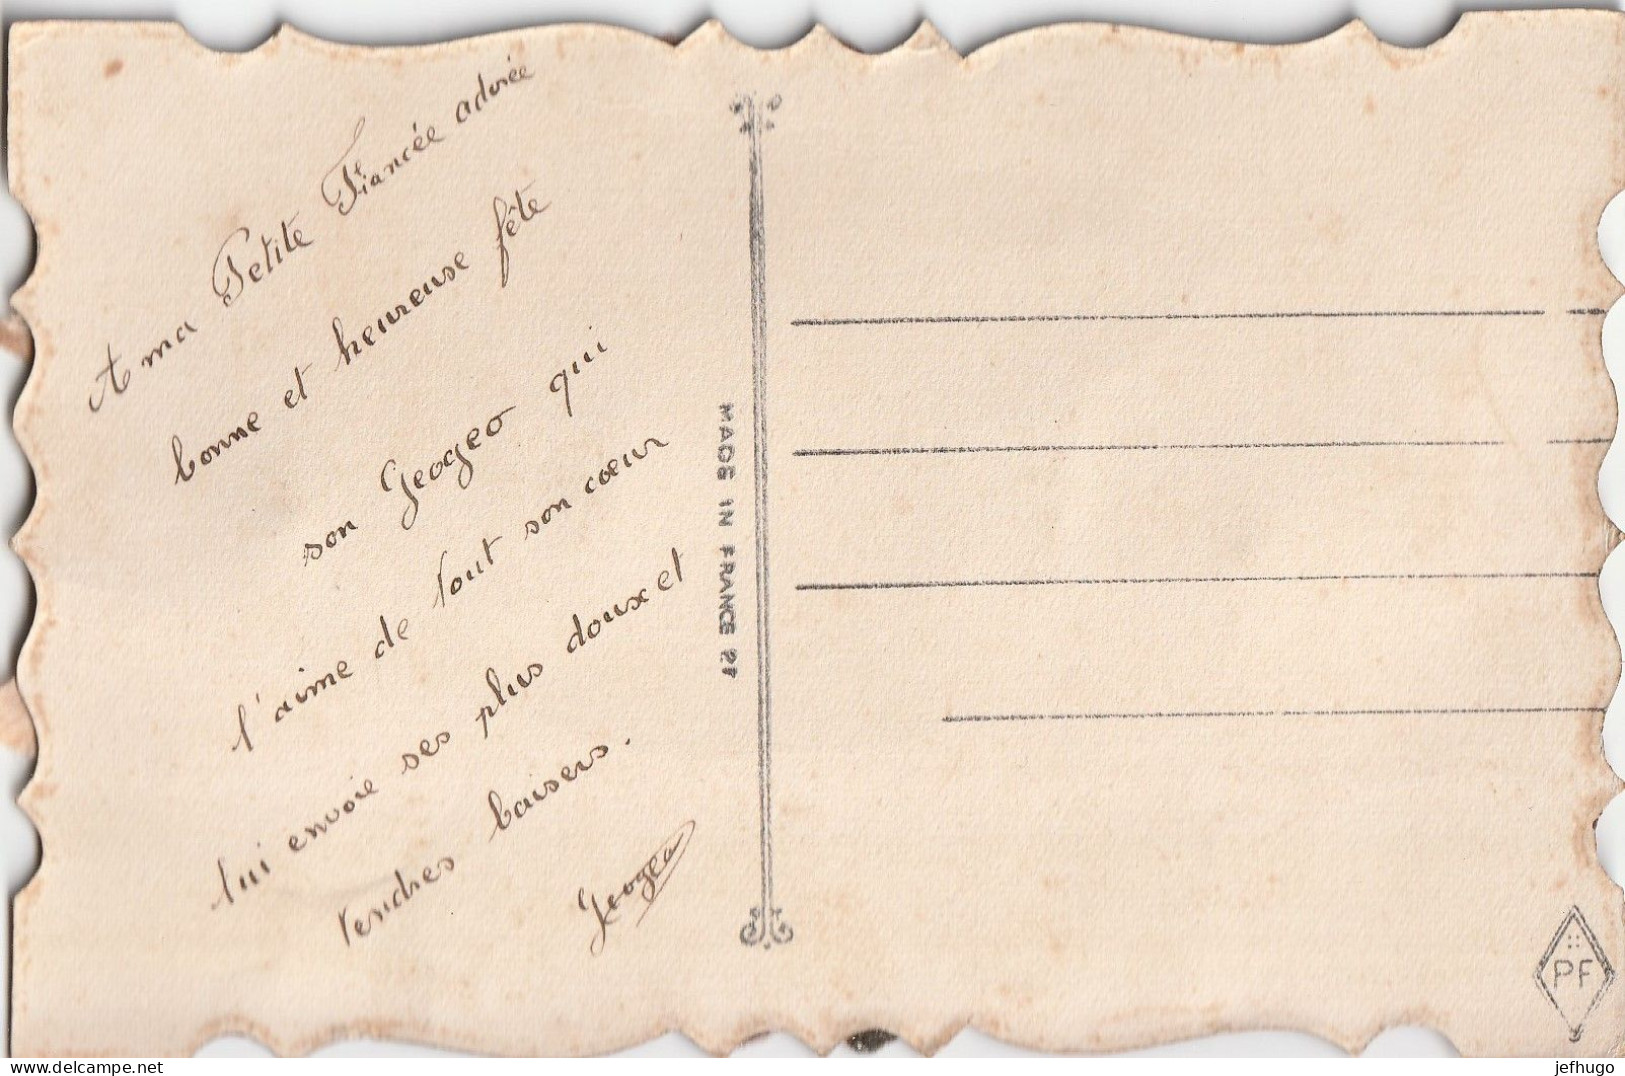 A ma Petite Fiancée adorée
bonne et heureuse fête
son Geogeo qui
l'aime de tout son cœur
lui envoie ses plus doux et
tendres baisers.
Geogeo
MADE IN FRANCE
PF
www.delcampe.net
jefhugo